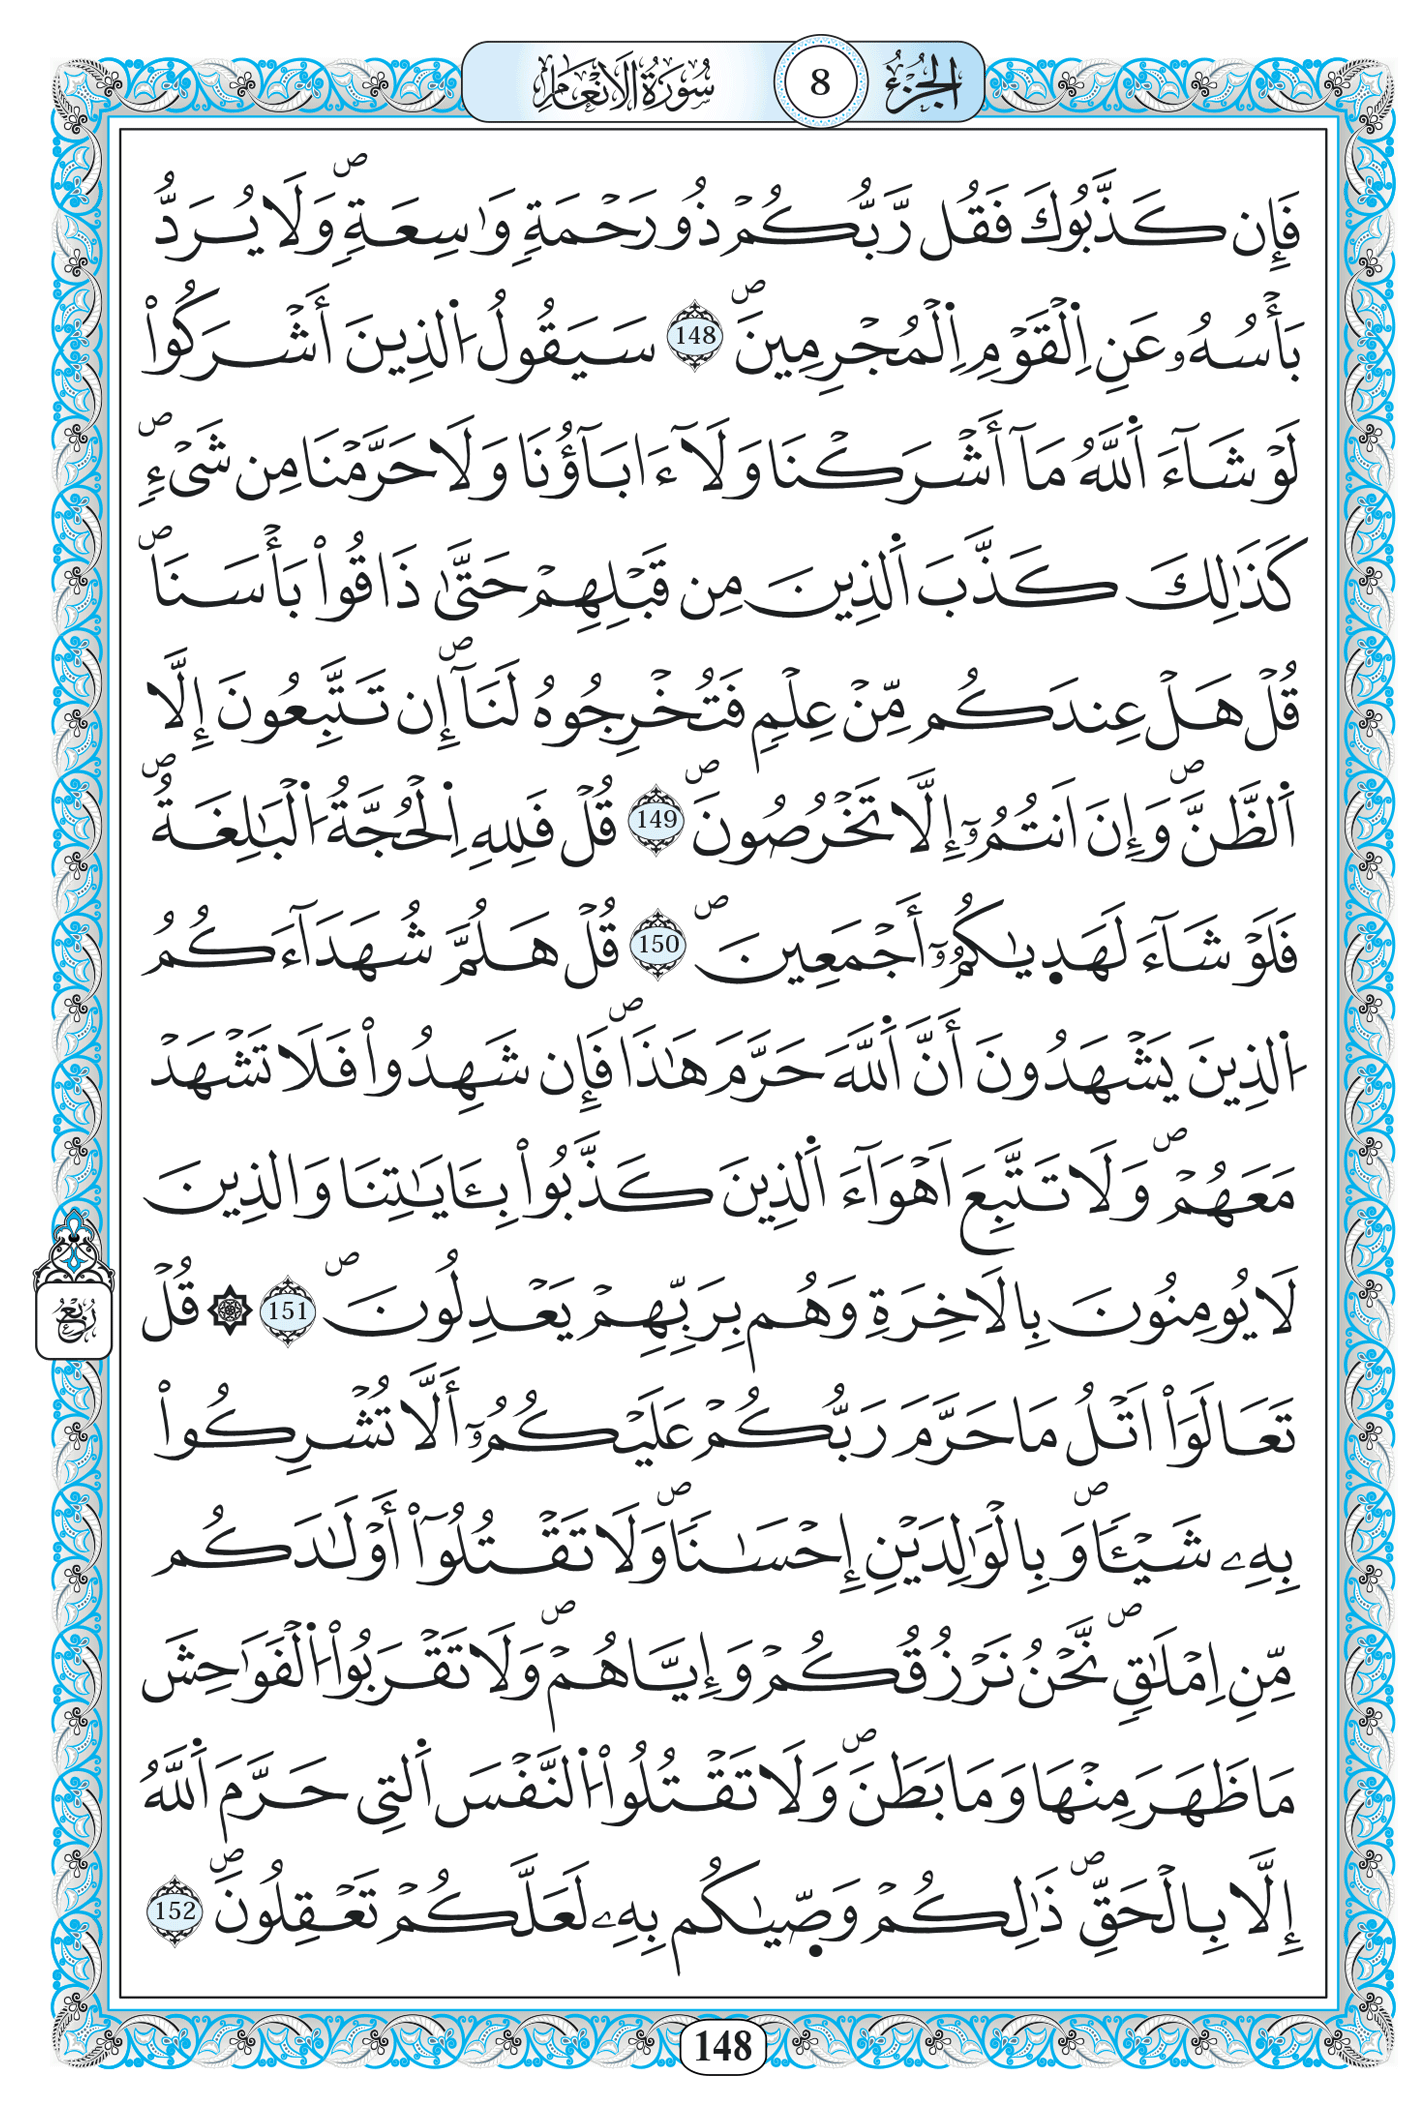 الجزء 8 سورة الانعام
فَإِن كَذَّبُوكَ فَقُل رَّبُّكُمْ ذُو رَحْمَةٖ وَٰسِعَةٖۖ وَلَا يُرَدُّ
بَأْسُهُۥ عَنِ اِ۬لْقَوْمِ اِ۬لْمُجْرِمِينَۖ 148 سَيَقُولُ اُ۬لذِينَ أَشْرَكُواْ
لَوْ شَآءَ اَ۬للَّهُ مَآ أَشْرَكْنَا وَلَآ ءَابَآؤُنَا وَلَا حَرَّمْنَا مِن شَےْءٖۖ
كَذَٰلِكَ كَذَّبَ اَ۬لذِينَ مِن قَبْلِهِمْ حَتَّىٰ ذَاقُواْ بَأْسَنَاۖ
قُلْ هَلْ عِندَكُم مِّنْ عِلْمٖ فَتُخْرِجُوهُ لَنَآۖ إِن تَتَّبِعُونَ إِلَّا
اَ۬لظَّنَّۖ وَإِنَ اَنتُمُۥٓ إِلَّا تَخْرُصُونَۖ 149 قُلْ فَلِلهِ اِ۬لْحُجَّةُ اُ۬لْبَٰلِغَةُۖ
فَلَوْ شَآءَ لَهَد۪يٰكُمُۥٓ أَجْمَعِينَۖ 150 قُلْ هَلُمَّ شُهَدَآءَكُمُ
اُ۬لذِينَ يَشْهَدُونَ أَنَّ اَ۬للَّهَ حَرَّمَ هَٰذَاۖ فَإِن شَهِدُواْ فَلَا تَشْهَدْ
مَعَهُمْۖ وَلَا تَتَّبِعَ اَهْوَآءَ اَ۬لذِينَ كَذَّبُواْ بِـَٔايَٰتِنَا وَالذِينَ
لَا يُومِنُونَ بِالَاخِرَةِ وَهُم بِرَبِّهِمْ يَعْدِلُونَۖ 151 ۞ قُلْ
تَعَالَوَاْ اَتْلُ مَا حَرَّمَ رَبُّكُمْ عَلَيْكُمُۥٓ أَلَّا تُشْرِكُواْ
بِهِۦ شَيْـٔٗاۖ وَبِالْوَٰلِدَيْنِ إِحْسَٰنٗاۖ وَلَا تَقْتُلُوٓاْ أَوْلَٰدَكُم
مِّنِ اِمْلَٰقٖۖ نَّحْنُ نَرْزُقُكُمْ وَإِيَّاهُمْۖ وَلَا تَقْرَبُواْ اُ۬لْفَوَٰحِشَ
مَا ظَهَرَ مِنْهَا وَمَا بَطَنَۖ وَلَا تَقْتُلُواْ اُ۬لنَّفْسَ اَ۬لتِي حَرَّمَ اَ۬للَّهُ
إِلَّا بِالْحَقِّۖ ذَٰلِكُمْ وَصّ۪يٰكُم بِهِۦ لَعَلَّكُمْ تَعْقِلُونَۖ 152
ربع
148